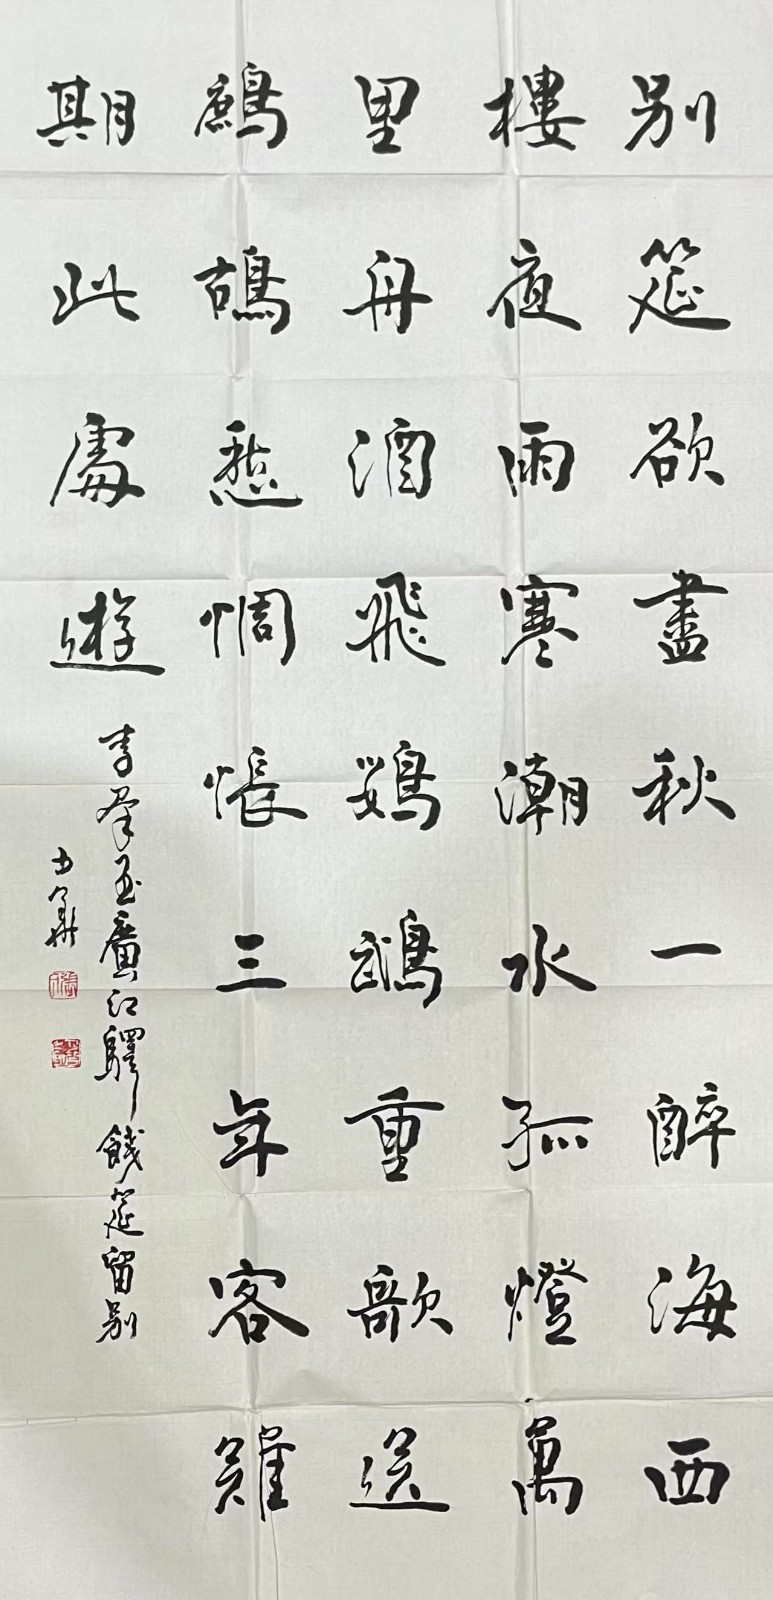 别筵欲盡秋一醉海西
樓夜雨寒潮水孤燈萬
里舟酒飛鸚鵡重歌送
鷓鴣愁惆悵三年客難
期此處遊
李羣玉廣江驛餞筵留别